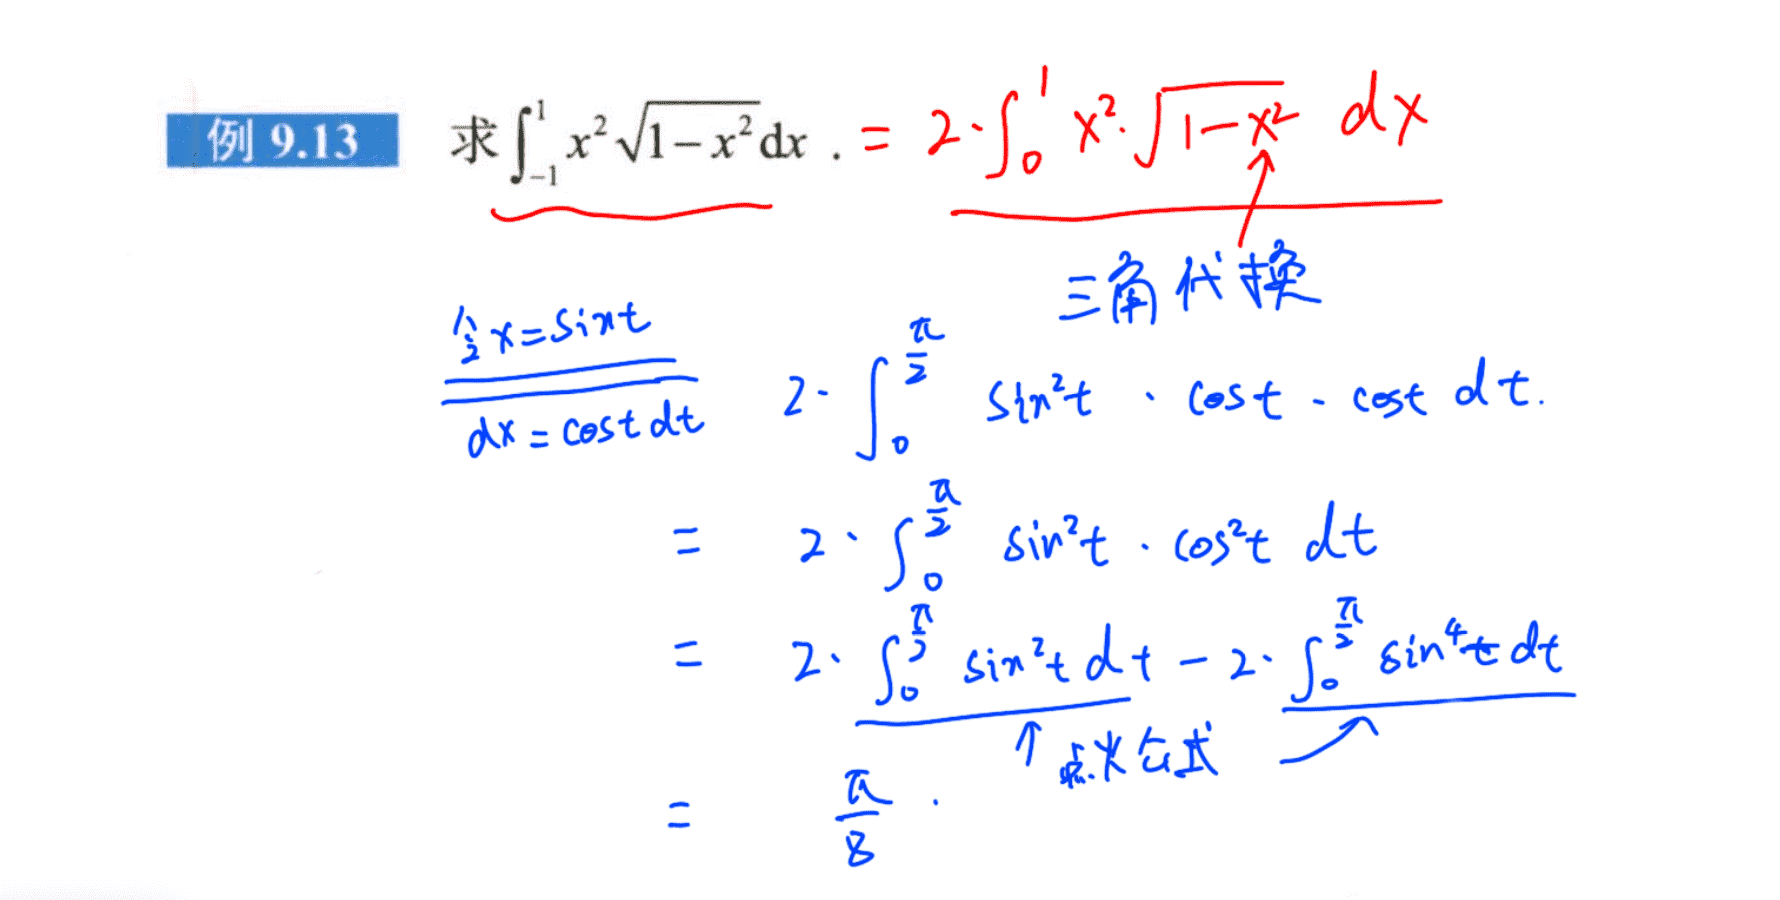 例 9.13 求∫₋₁¹ x²√(1−x²)dx . = 2·∫₀¹ x²·√(1−x²) dx
三角代换
令x=sint
dx=costdt
2·∫₀^(π/2) sin²t · cost · cost dt.
= 2·∫₀^(π/2) sin²t · cos²t dt
= 2·∫₀^(π/2) sin²t dt − 2·∫₀^(π/2) sin⁴t dt
点火公式
= π/8 .